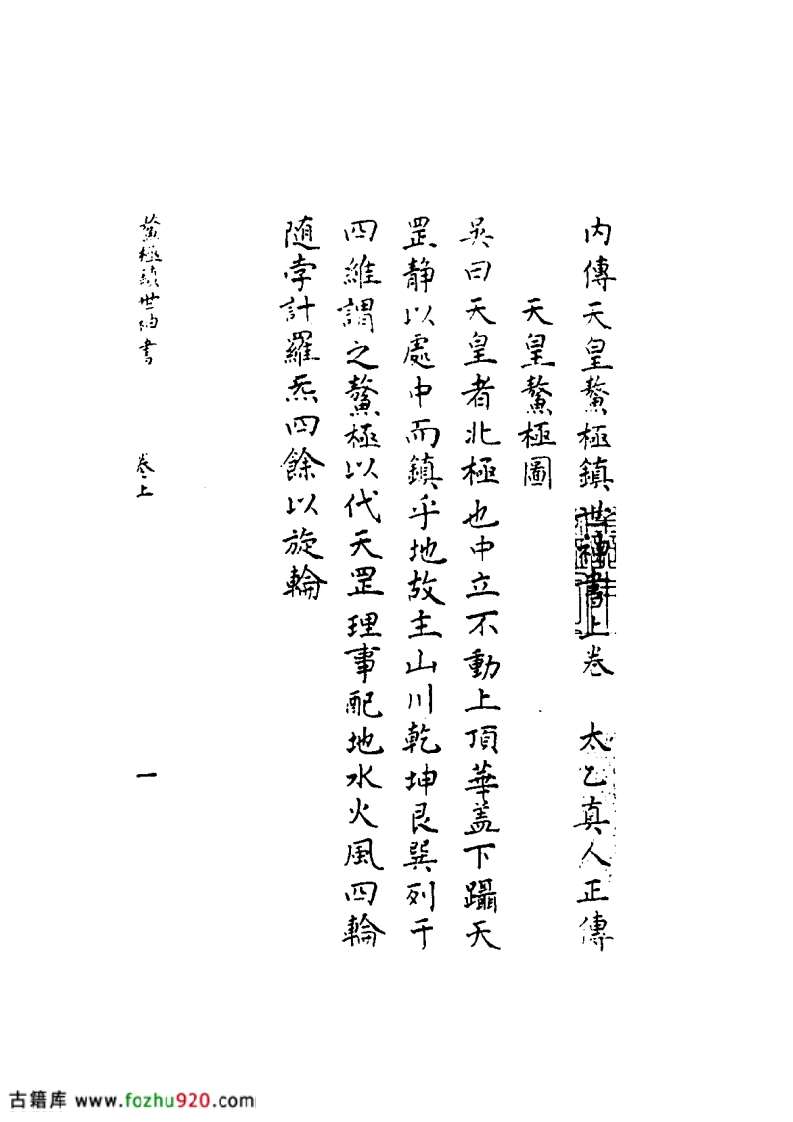 內傳天皇鰲極鎮世神書上卷　太乙真人正傳
天皇鰲極圖
吳曰天皇者北極也中立不動上頂華蓋下躡天
罡静以處中而鎮乎地故主山川乾坤艮巽列于
四維謂之鰲極以代天罡理事配地水火風四輪
随孛計羅炁四餘以旋輪
鰲極鎮世神書　卷上　一
古籍库 www.fozhu920.com